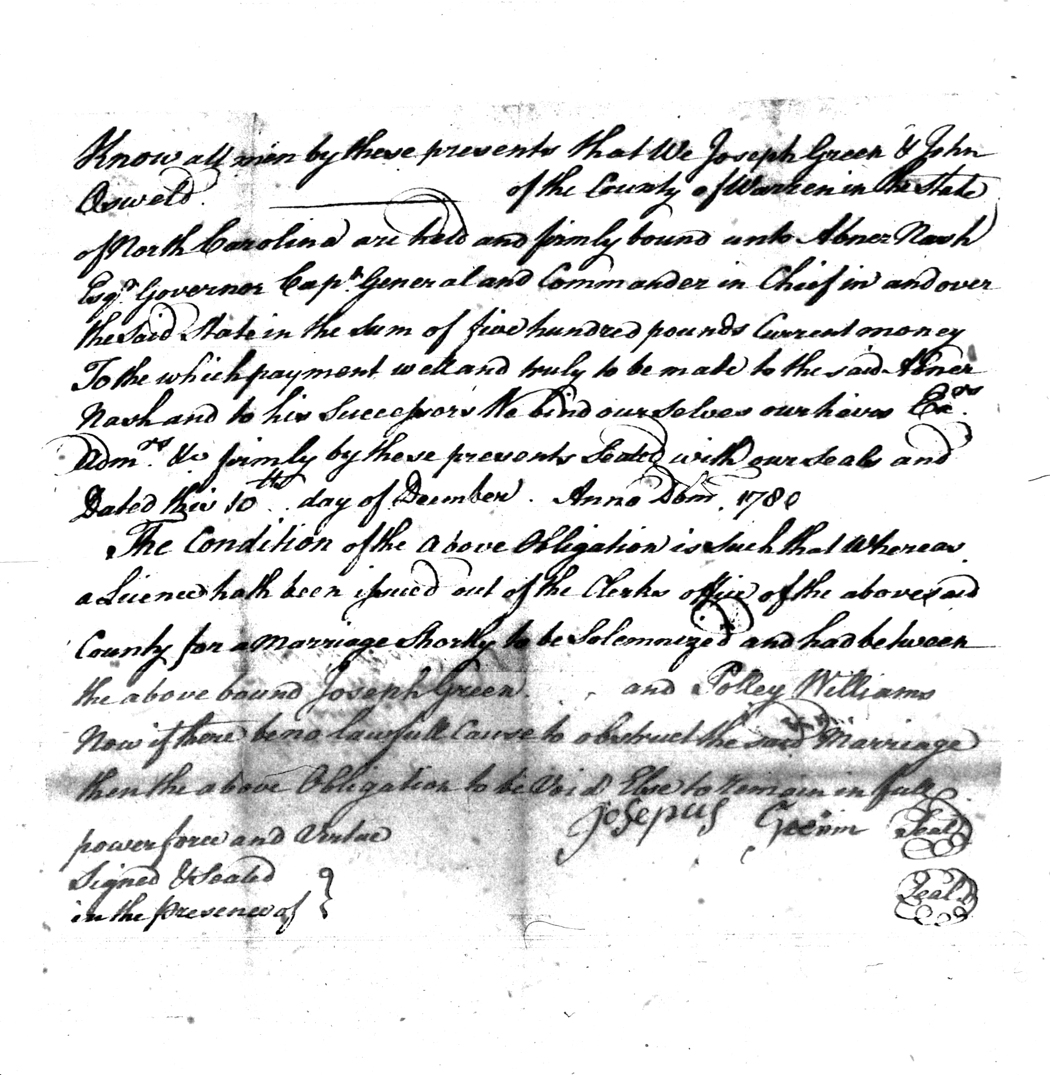 Know all men by these presents that We Joseph Green & John
Osweld. of the County of Warren in the State
of North Carolina are held and firmly bound unto Abner Nash
Esqr. Governor Capn. General and Commander in Chief in and over
the Said State in the Sum of five hundred pounds Current money
To the which payment well and truly to be made to the said Abner
Nash and to his Successors We bind ourselves our heirs Exrs.
Admrs. &c firmly by these presents Sealed with our Seals and
Dated this 10th. day of December. Anno Dom. 1780
The Condition of the Above Obligation is Such that Whereas
a Licence hath been issued out of the Clerks office of the above said
County for a Marriage Shortly to be Solemnized and had between
the above bound Joseph Green and Polley Williams
Now if there be no lawfull Cause to obstruct the said Marriage
then the above Obligation to be Void Else to remain in full
power force and Virtue
Josepus Seal
Signed & Sealed
in the presence of Seal